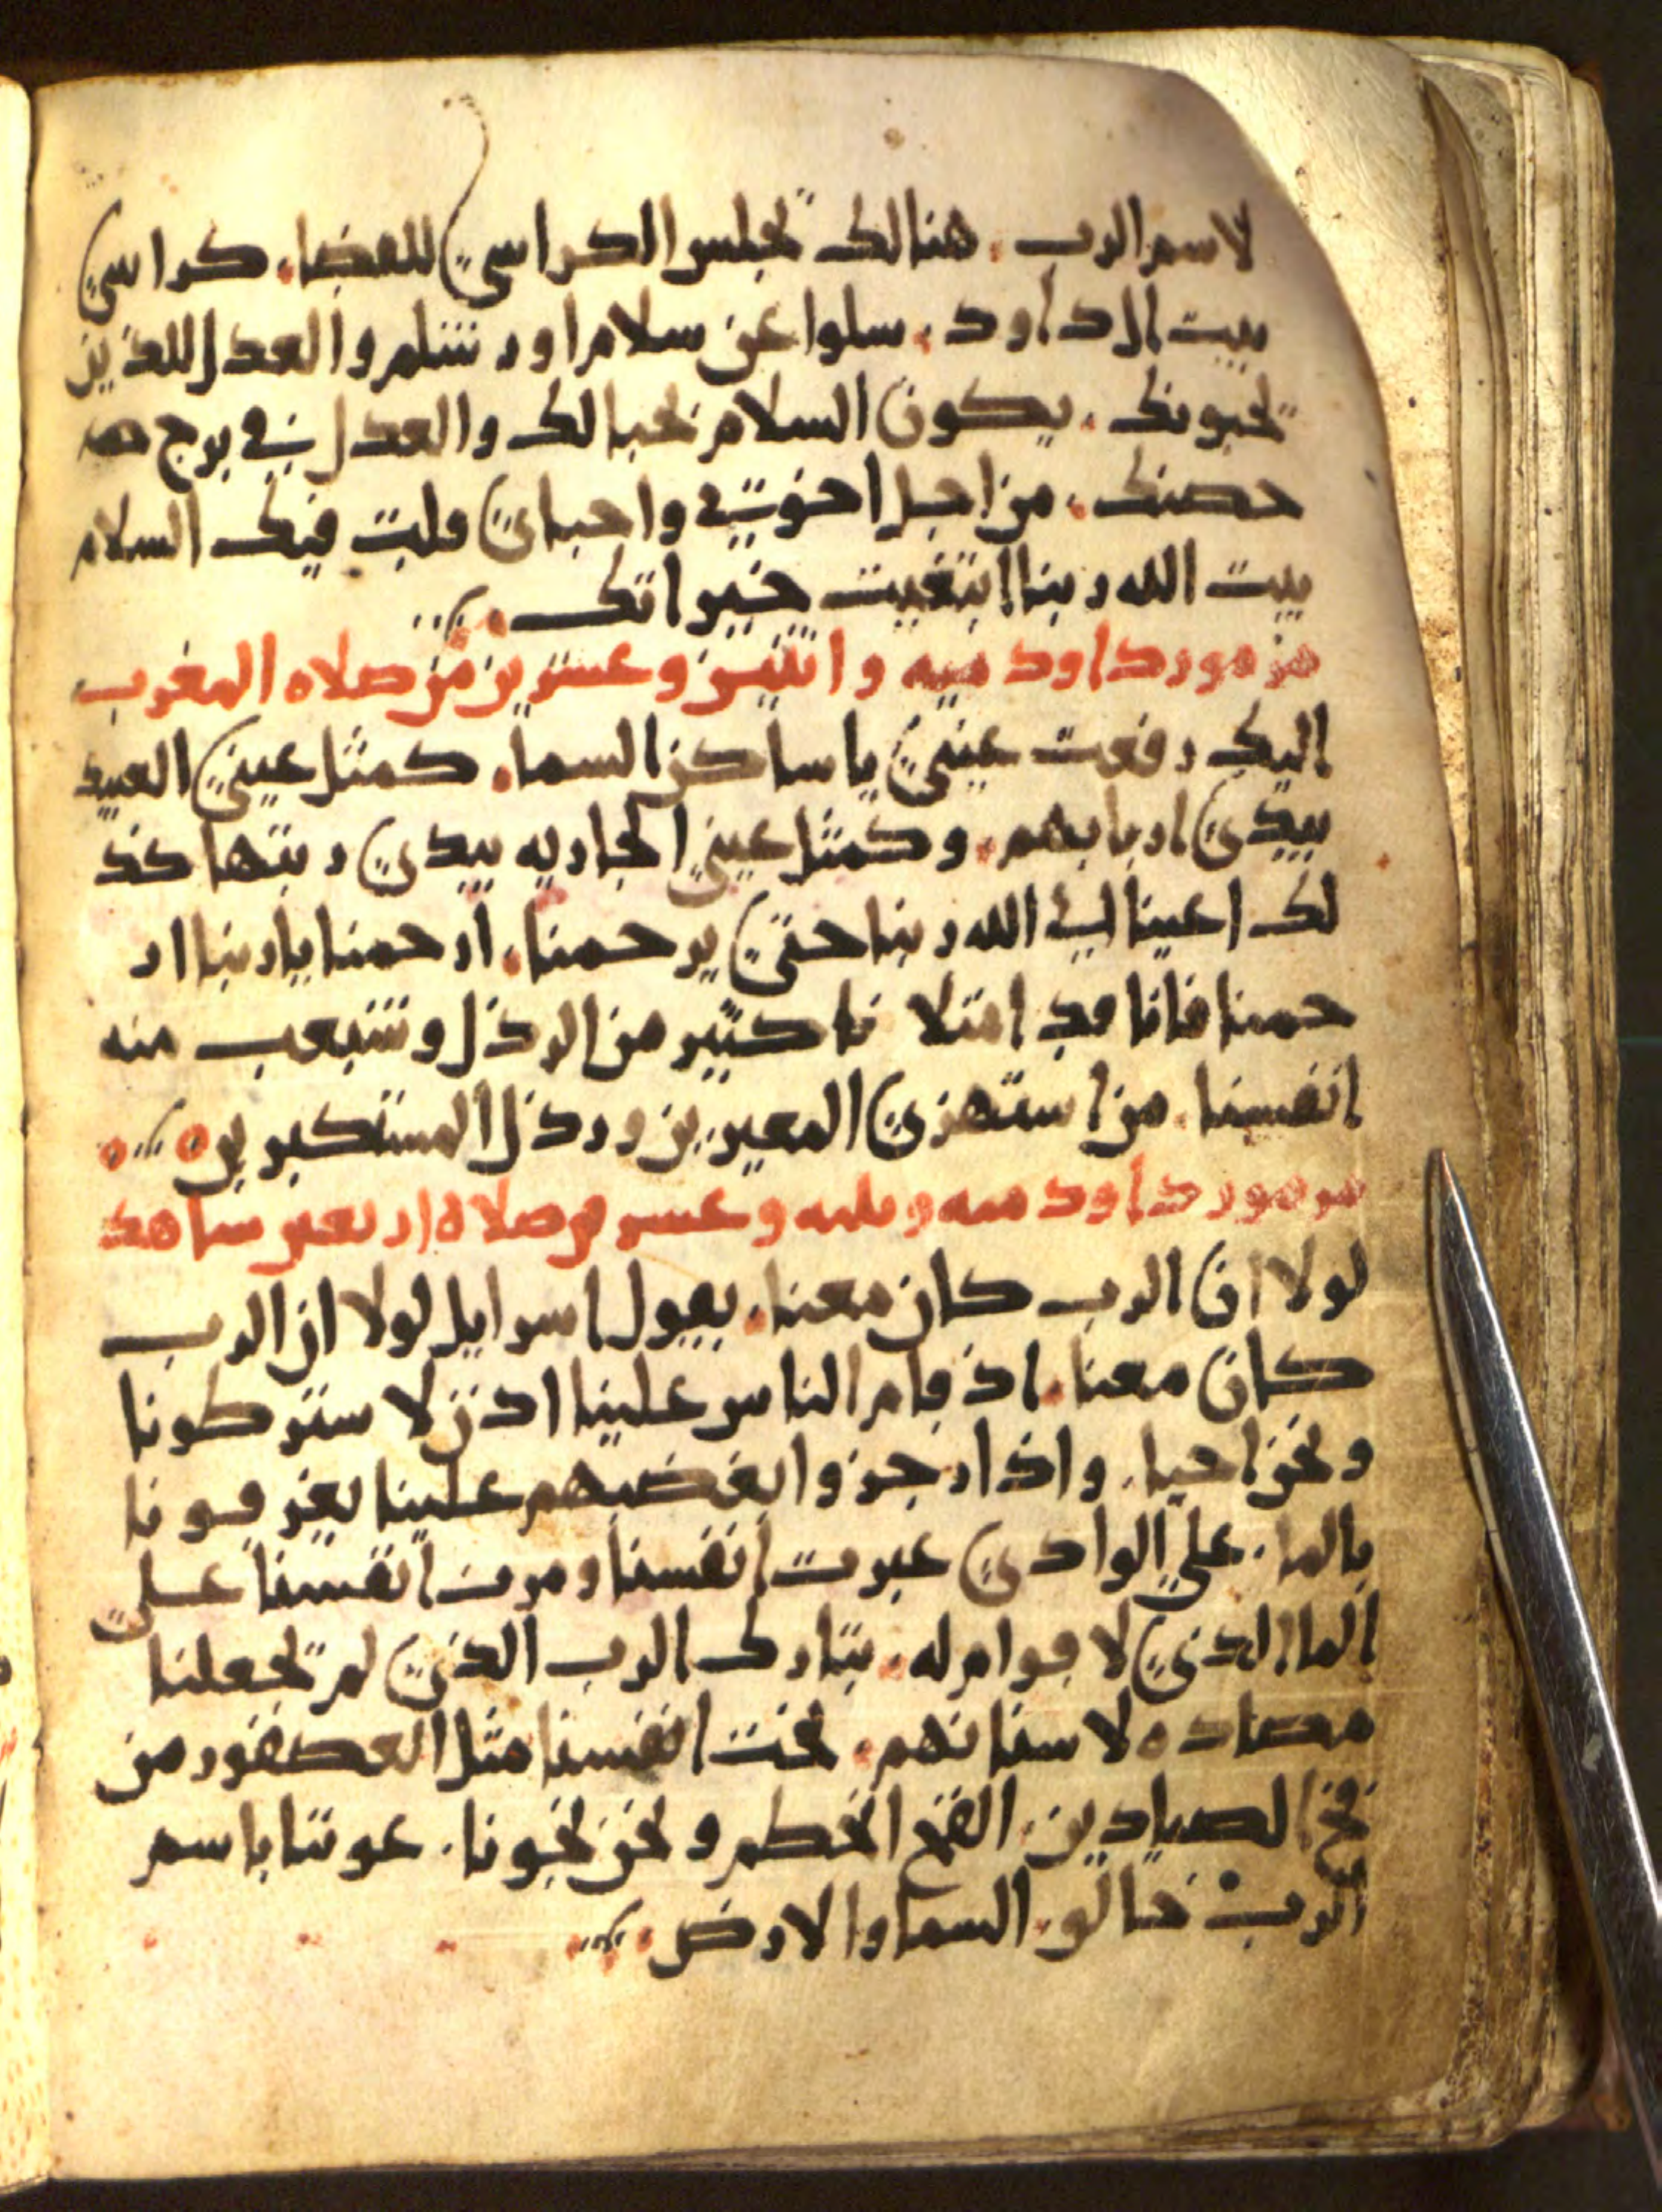 لاسم الرب. هنالك تجلس الكراسي للقضا. كراسي
بيت ال داود. سلوا عن سلام اورشلم والعدل للذين
تحبونك. يكون السلام نحبا لك والعدل في برج
حصنك. من اجل اخوتي واحباي قلت فيك السلام
بيت الله ربنا ابتغيت خيراتك.
مزمور داود ميه واتنين وعشرين من صلاه المغرب
اليك رفعت عيني يا ساكن السما. كمثل عيني العبيد
بيدي اربابهم. وكمثل عيني الجاريه بيدي ربتها كذ
لك اعينا الي الله ربنا حتي يرحمنا. ارحمنا يا ربنا ار
حمنا فانا قد امتلا نا كثير من الرذل وشبعت منه
انفسنا. من استهزي المعيرين ورذل المستكبرين
مزمور داود ميه وثلثه وعشرين صلاة اربعين ساهد
لولا ان الرب كان معنا. يقول اسرايل لولا ان الرب
كان معنا. اذ قام الناس علينا اذن لا ستركونا
ونحن احيا. واذا رجزوا بغضبهم علينا يغرقونا
بالما. علي الوادي عبرت انفسنا ومرت انفسنا علي
الما الذي لا قوام له. تبارك الرب الذي لم تجعلنا
مصاده لاسنانهم. نجت انفسنا مثل العصفور من
فخ الصيادين. الفخ انحطم ونحن نجونا. عوننا باسم
الرب خالق السما والارض